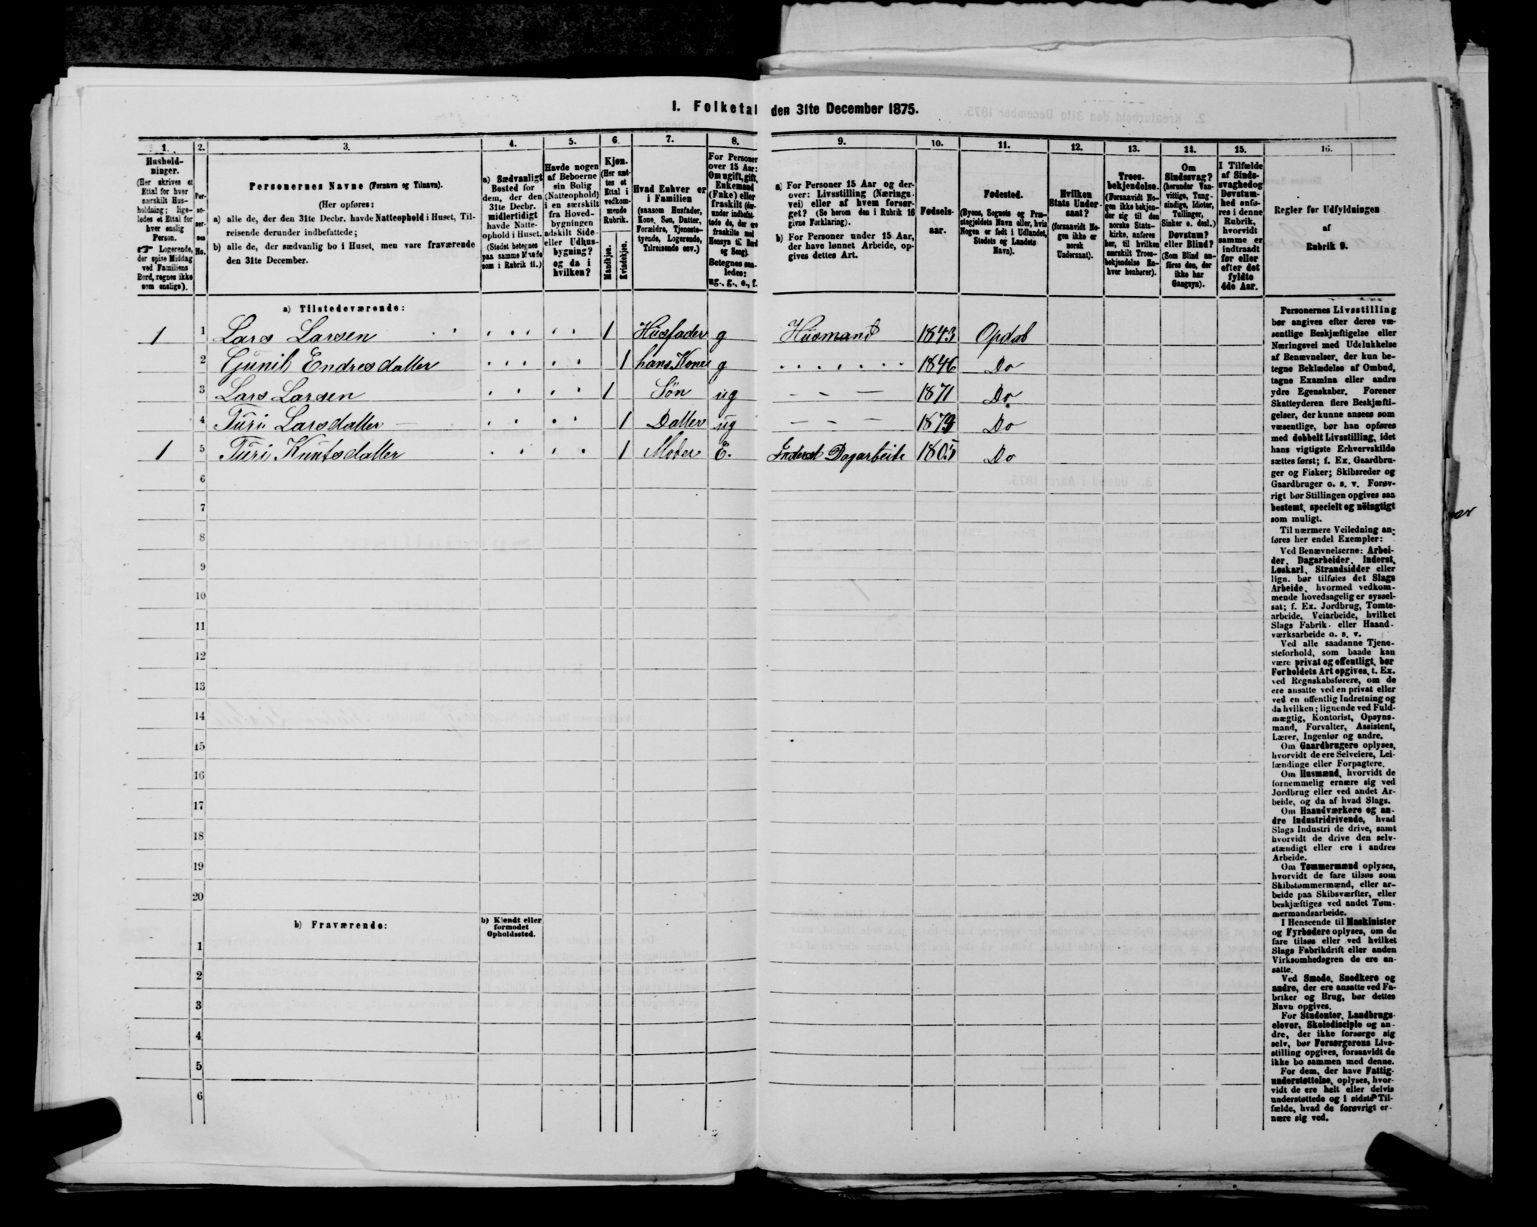 I. Folketal den 31te December 1875.
1. 2. 3. 4. 5. 6. 7. 8. 9. 10. 11. 12. 13. 14. 15. 16.
Hushold-
ninger.
(Her skrives et
Ettal for hver
særskilt Hus-
holdning; lige-
ledes et Ettal for
hver enslig
Person.
☞ Logerende,
der spise Middag
ved Familiens
Bord, regnes ikke
som enslige).
Per-
so-
ner-
nes
No.
Personernes Navne (Fornavn og Tilnavn).
(Her opføres:
a) alle de, der den 31te Decbr. havde Natteophold i Huset, Til-
reisende derunder indbefattede;
b) alle de, der sædvanlig bo i Huset, men vare fraværende
den 31te December.
a) Sædvanligt
Bosted for
dem, der den
31te Decbr.
midlertidigt
havde Natte-
ophold i Huset.
(Stedet betegnes
paa samme Maade
som i Rubrik 11.)
Havde nogen
af Beboerne
sin Bolig
(Natteophold)
i en særskilt
fra Hoved-
bygningen
adskilt Side-
eller Udhus-
bygning?
og da i
hvilken?
Kjøn.
(Her sæt-
tes et
Ettal i
vedkom-
mende
Rubrik.
Mandkjøn.
Kvindekjøn.
Hvad Enhver er
i Familien
(saasom Husfader,
Kone, Søn, Datter,
Forældre, Tjeneste-
tyende, Logerende,
Tilreisende osv.)
For Personer
over 15 Aar:
Om ugift, gift,
Enkemand
(Enke) eller
fraskilt (der-
under indbefat-
tede de, der ere
fraskilte med
Hensyn til Bord
og Seng).
Betegnes saa-
ledes:
ug., g., e., f.
a) For Personer 15 Aar og der-
over: Livsstilling (Nærings-
vei) eller af hvem forsør-
get? (Se herom den i Rubrik 16
givne Forklaring).
b) For Personer under 15 Aar,
der have lønnet Arbeide, op-
gives dettes Art.
Fødsels-
aar.
Fødested.
(Byens, Sognets og Præ-
stegjeldets Navn eller, hvis
Nogen er født i Udlandet,
Stedets og Landets
Navn).
Hvilken
Stats Under-
saat?
(forsaavidt No-
gen ikke er
norsk
Undersaat).
Troes-
bekjendelse.
(Forsaavidt No-
gen ikke bekjen-
der sig til den
norske Stats-
kirke, anføres
her, til hvilken
særskilt Troes-
bekjendelse En-
hver henhører).
Om
Sindssvag?
(herunder Van-
vittige, Tung-
sindige, Idioter,
Tullinger,
Sinker o. desl.)
Døvstum?
eller Blind?
(Som Blind an-
føres den, der
ikke har
Gangsyn).
I Tilfælde
af Sinds-
svaghed og
Døvstum-
hed anfø-
res i denne
Rubrik,
hvorvidt
samme er
indtraadt
før eller
efter det
fyldte
4de Aar.
Regler for Udfyldningen
af
Rubrik 9.
a) Tilstedeværende:
1 1 Lars Larsen 1 Husfader g Husmand 1843 Opdal
2 Gunil Endresdatter 1 hans Kone g 1846 Do
3 Lars Larsen 1 Søn ug 1871 Do
4 Turi Larsdatter 1 Datter ug Do
1 5 Turi Knutsdatter 1 Moter E. Inderst Dagarbeite 1805 Do
6
7
8
9
10
11
12
13
14
15
16
17
18
19
20
b) Fraværende:
b) Kjendt eller
formodet
Opholdssted.
1
2
3
4
5
6
Personernes Livsstilling
bør angives efter deres væ-
sentlige Beskjæftigelse eller
Næringsvei med Udelukkelse
af Benævnelser, der kun be-
tegne Beklædelse af Ombud,
tagne Examina eller andre
ydre Egenskaber. Forener
Skatteyderen flere Beskjæfti-
gelser, der kunne ansees som
væsentlige, bør han opføres
med dobbelt Livsstilling, idet
hans vigtigste Erhvervskilde
sættes først; f. Ex. Gaardbru-
ger og Fisker; Skibsreder og
Gaardbruger o. s. v. Forøv-
rigt bør Stillingen opgives saa
bestemt, specielt og nöiagtigt
som muligt.
Til nærmere Veiledning an-
føres her endel Exempler:
Ved Benævnelserne: Arbei-
der, Dagarbeider, Inderst,
Løskarl, Strandsidder eller
lign. bør tilføies det Slags
Arbeide, hvormed vedkom-
mende hovedsagelig er syssel-
sat; f. Ex. Jordbrug, Tomte-
arbeide, Veiarbeide, hvilket
Slags Fabrik- eller Haand-
værksarbeide o. s. v.
Ved alle saadanne Tjene-
steforhold, som baade kan
være privat og offentligt, bør
Forholdets Art opgives, t. Ex.
ved Regnskabsførere, om de
ere ansatte ved en privat eller
ved en offentlig Indretning og
da hvilken; lignende ved Fuld-
mægtig, Kontorist, Opsyns-
mand, Forvalter, Assistent,
Lærer, Ingeniør og andre.
Om Gaardbrugere oplyses,
hvorvidt de ere Selveiere, Lei-
lændinge eller Forpagtere.
Om Husmænd, hvorvidt de
fornemmelig ernære sig ved
Jordbrug eller ved andet Ar-
beide, og da af hvad Slags.
Om Haandværkere og an-
dre Industridrivende, hvad
Slags Industri de drive, samt
hvorvidt de drive den selv-
stændigt eller ere i andres
Arbeide.
Om Tømmermænd oplyses,
hvorvidt de fare tilsøs som
Skibstømmermænd, eller ar-
beide paa Skibsværfter, eller
beskjæftiges ved andet Tøm-
mermandsarbeide.
I Henseende til Maskinister
og Fyrbødere oplyses, om de
fare tilsøs eller ved hvilket
Slags Fabrikdrift eller anden
Virksomhedsgren de ere an-
satte.
Ved Smede, Snedkere og
andre, der ere ansatte ved Fa-
briker og Brug, bør dettes
Navn opgives.
For Studenter, Landbrugs-
elever, Skoledisciple og an-
dre, der ikke forsørge sig
selv, bør Forsørgerens Livs-
stilling opgives, forsaavidt de
ikke bo sammen med denne.
For dem, der have Fattig-
understøttelse, oplyses, hvor-
vidt de ere helt eller delvis
understøttede og i sidste Til-
fælde, hvad de forøvrigt er-
nære sig ved.